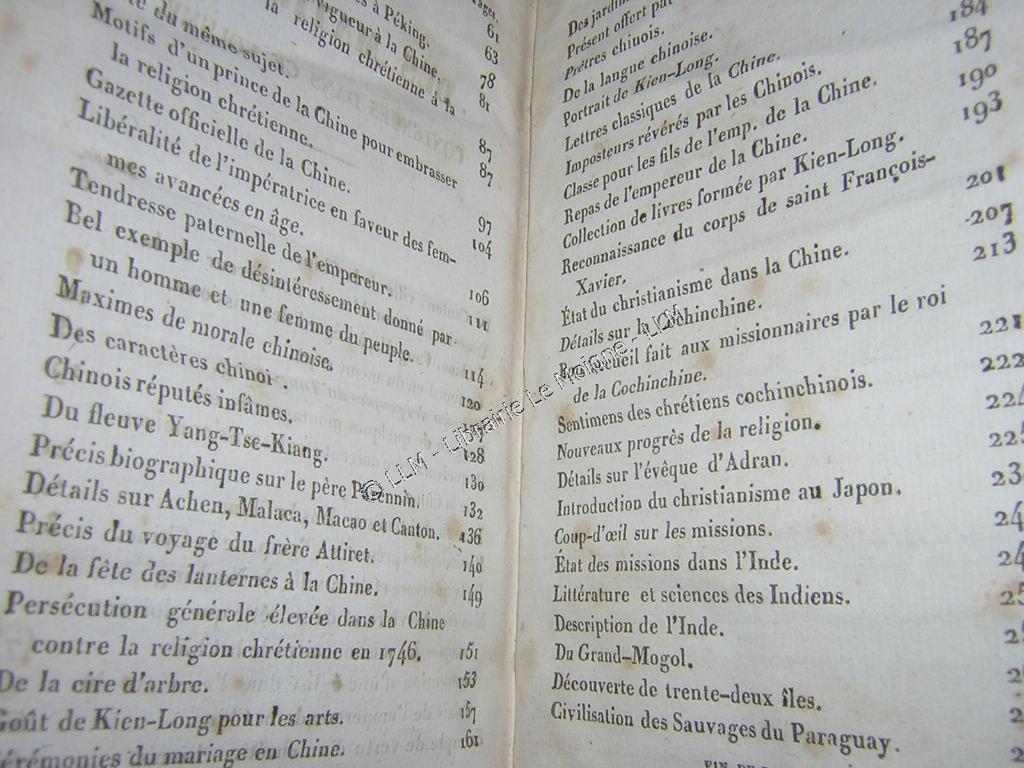 à Péking.
61
vigueur à la Chine.
63
du même sujet.
la religion chrétienne à la
78
Motifs d'un prince de la Chine pour embrasser
81
la religion chrétienne.
87
Gazette officielle de la Chine.
87
Libéralité de l'impératrice en faveur des fem-
mes avancées en âge.
97
Tendresse paternelle de l'empereur.
104
Bel exemple de désintéressement donné par
106
un homme et une femme du peuple.
111
Maximes de morale chinoise.
114
Des caractères chinoi .
120
Chinois réputés infâmes.
Du fleuve Yang-Tse-Kiang.
128
Précis biographique sur le père
130
Détails sur Achen, Malaca, Macao et Canton.
132
Précis du voyage du frère Attiret.
136
De la fête des lanternes à la Chine.
140
Persécution générale élevée dans la Chine
149
contre la religion chrétienne en 1746.
151
De la cire d'arbre.
153
Goût de Kien-Long pour les arts.
157
Cérémonies du mariage en Chine.
161
Des jardin
Présent offert par
Prêtres chinois.
184
De la langue chinoise.
Portrait de Kien-Long.
187
Lettres classiques de la Chine.
Imposteurs révérés par les Chinois.
190
Classe pour les fils de l'emp. de la Chine.
Repas de l'empereur de la Chine.
193
Collection de livres formée par Kien-Long.
Reconnaissance du corps de saint François-
Xavier.
201
État du christianisme dans la Chine.
207
Détails sur la Cochinchine.
213
Bon accueil fait aux missionnaires par le roi
de la Cochinchine.
221
Sentimens des chrétiens cochinchinois.
222
Nouveaux progrès de la religion.
224
Détails sur l'évêque d'Adran.
225
Introduction du christianisme au Japon.
23
Coup-d'œil sur les missions.
24
État des missions dans l'Inde.
24
Littérature et sciences des Indiens.
25
Description de l'Inde.
Du Grand-Mogol.
Découverte de trente-deux îles.
Civilisation des Sauvages du Paraguay.
© LLM - Librairie Le Moigne - LLM